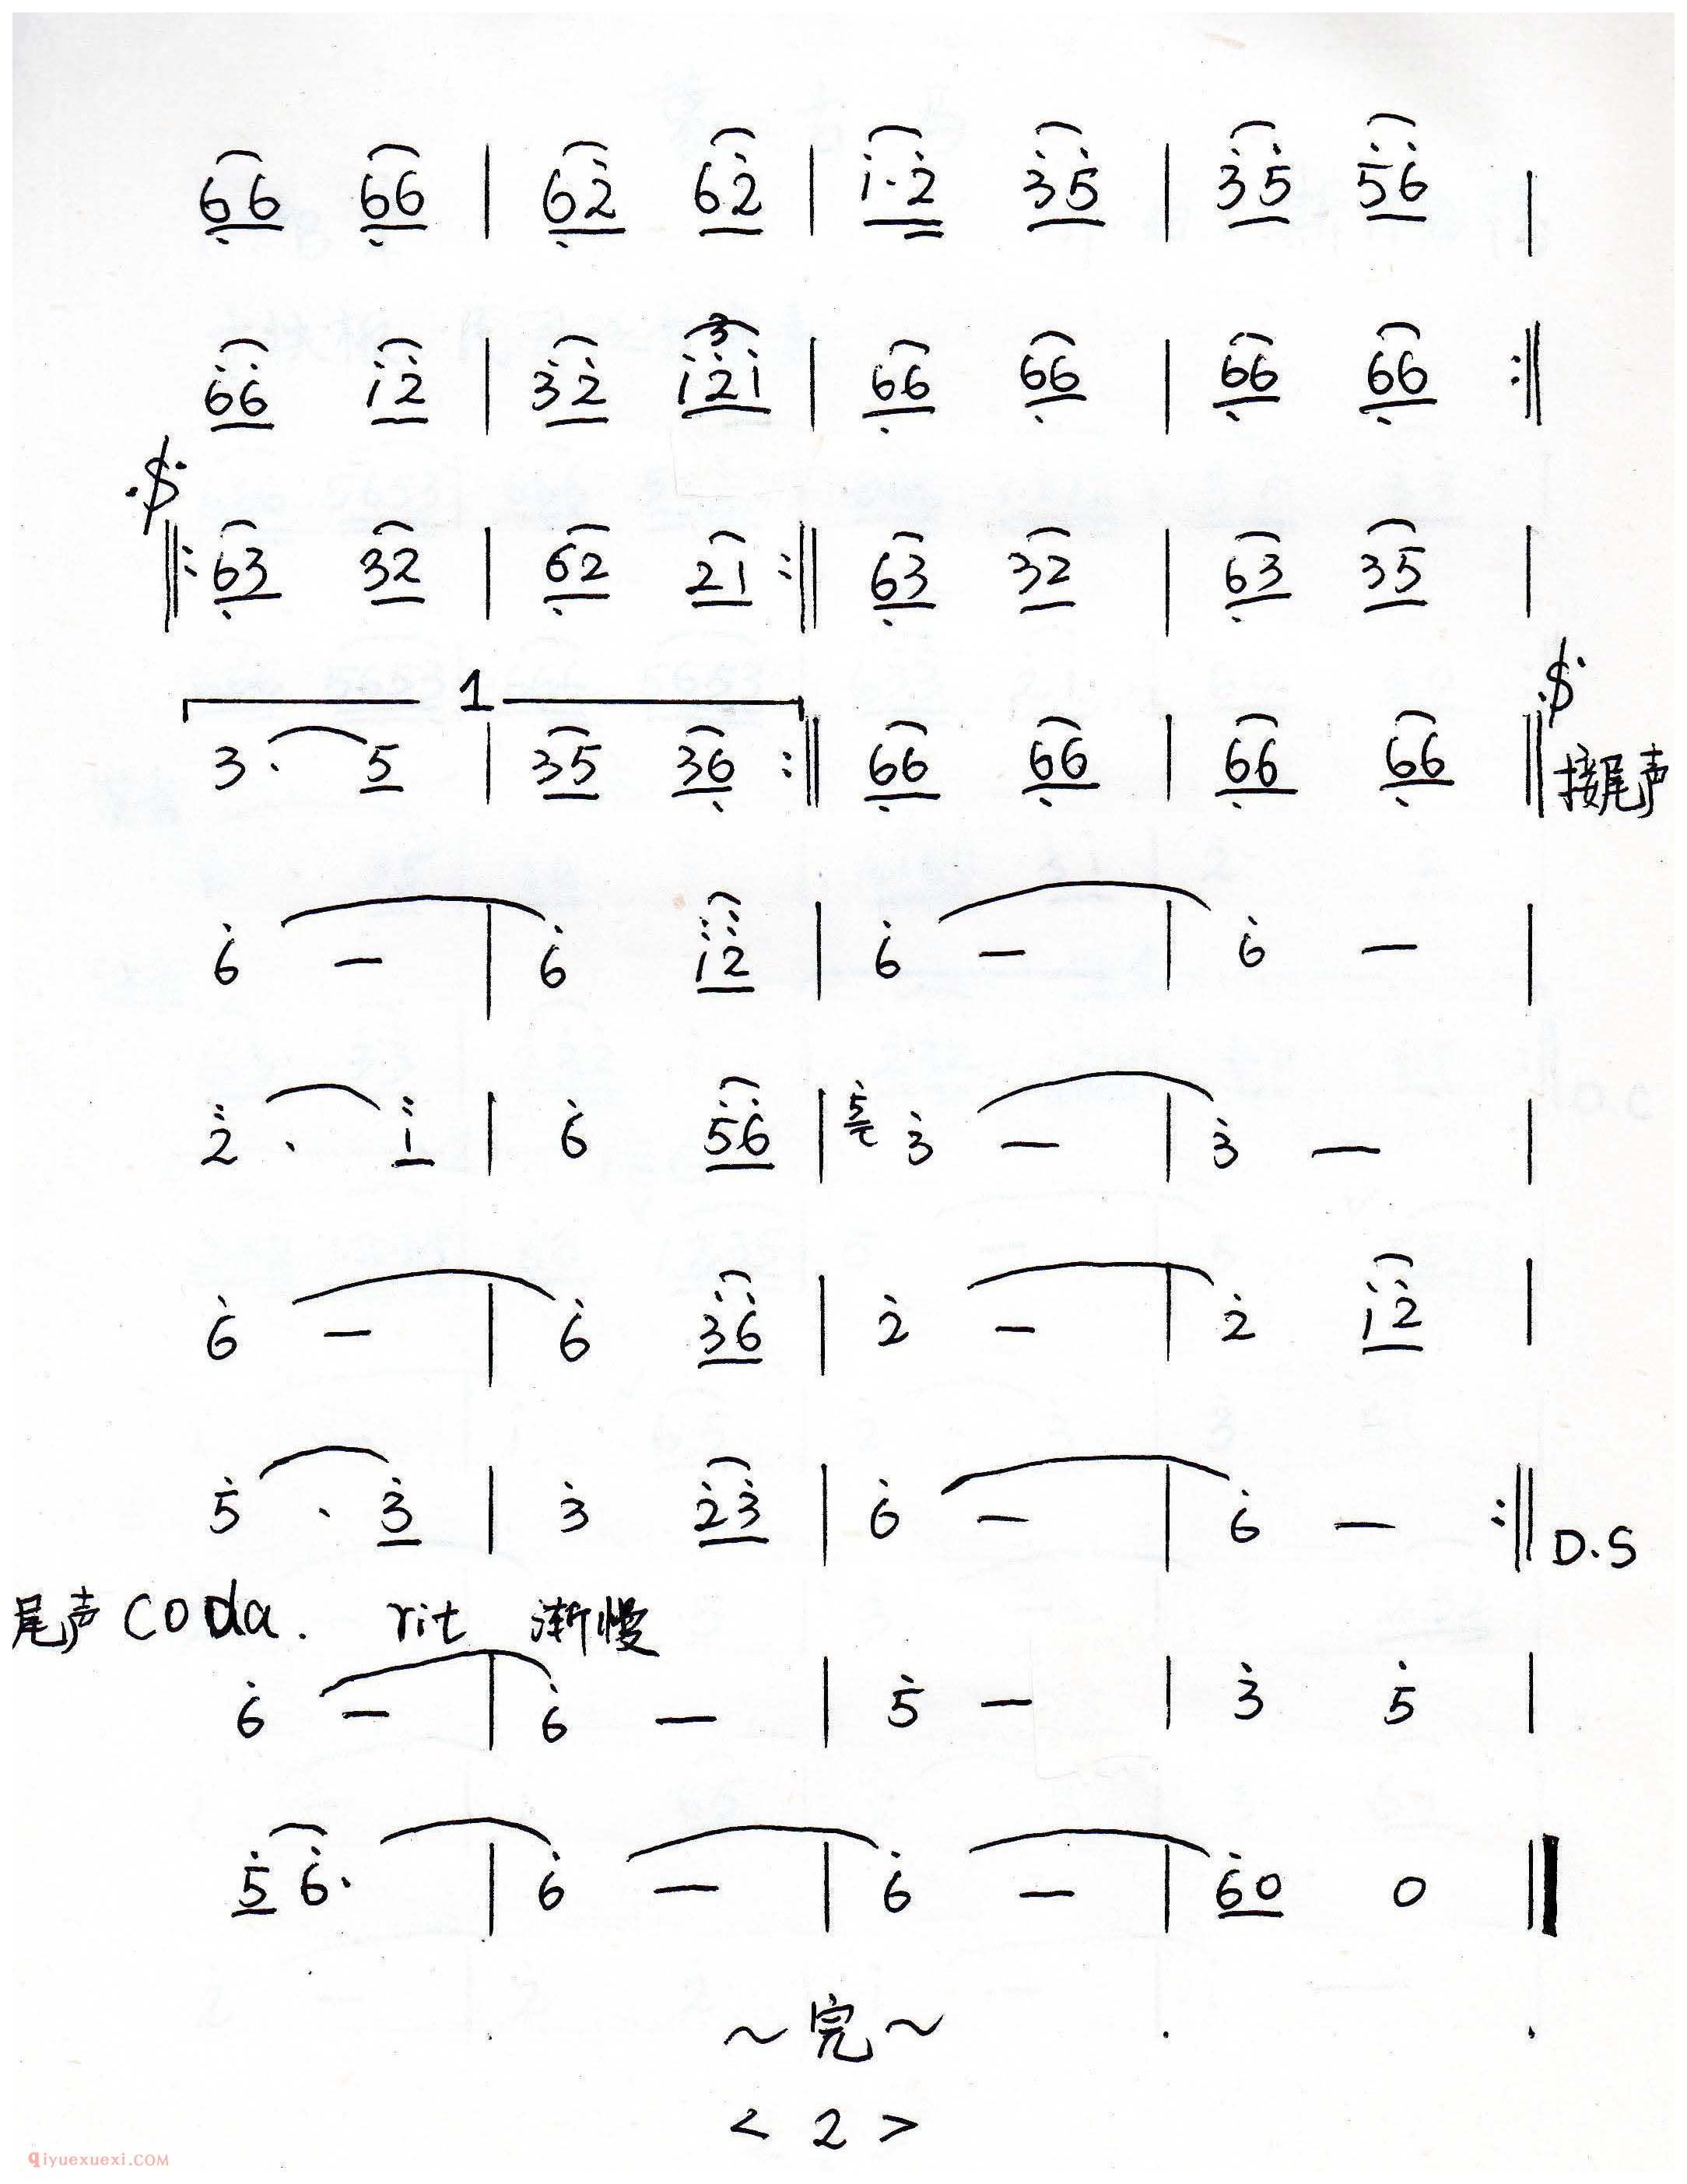 6̣6 6̣6 | 6̣2̇ 62̇ | 1̇·2̇ 3̇5̇ | 3̇5̇ 5̇6̇ |
6̇6̇ 1̇2̇ | 3̇2̇ 3 1̇2̇1̇ | 6̣6 6̣6 | 6̣6 6̣6 :‖
𝄋
‖: 6̣3 32 | 6̣2 21 :‖ 6̣3 32 | 6̣3 35 |
1
𝄋
3· 5 | 35 36̣ :‖ 6̣6 6̣6 | 6̣6 6̣6 ‖ 接尾声
6̇ — | 6̇ 1̈2̈ | 6̇ — | 6̇ — |
2̈· 1̈ | 6̇ 5̇6̇ | 5̇ 3̇ — | 3̇ — |
6̇ — | 6̇ 3̇6̇ | 2̇ — | 2̇ 1̇2̇ |
5̇· 3̇ | 3̇ 2̇3̇ | 6̇ — | 6̇ — :‖ D.S
尾声 coda. rit 渐慢
6̇ — | 6̇ — | 5̇ — | 3̇ 5̇ |
5̇ 6̇· | 6̇ — | 6̇ — | 6̇0 0 ‖
~完~
< 2 >
qiyuexuexi.COM